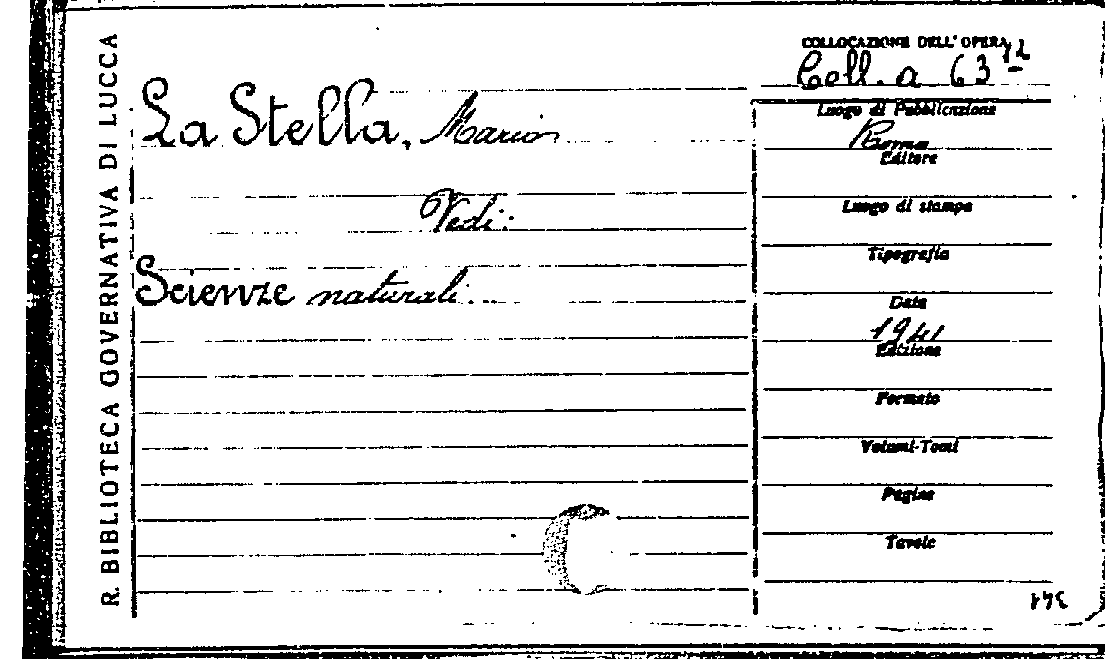 R. BIBLIOTECA GOVERNATIVA DI LUCCA
La Stella, Mario
Vedi:
Scienze naturali.
COLLOCAZIONE DELL'OPERA
Coll. a 63 12
Luogo di Pubblicazione
Roma
Editore
Luogo di stampa
Tipografia
Data
1941
Edizione
Formato
Volumi-Tomi
Pagine
Tavole